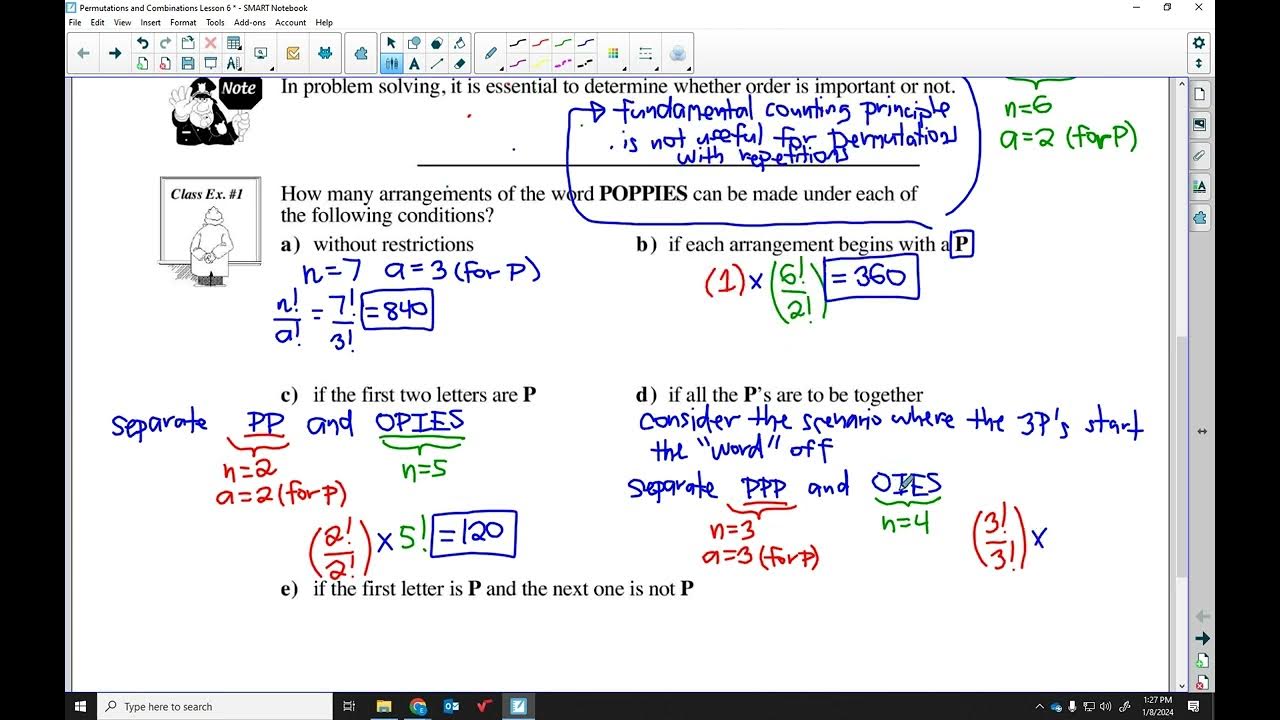 Permutations and Combinations Lesson 6 * - SMART Notebook
File Edit View Insert Format Tools Add-ons Account Help
Note
In problem solving, it is essential to determine whether order is important or not.
n=6
a=2 (for P)
→ fundamental counting principle
is not useful for permutations
with repetitions
Class Ex. #1
How many arrangements of the word POPPIES can be made under each of
the following conditions?
a) without restrictions
n=7 a=3 (for P)
n!/a! = 7!/3! =840
b) if each arrangement begins with a P
(1) × (6!/2!) = 360
c) if the first two letters are P
separate PP and OPIES
n=2 n=5
a=2 (for P)
(2!/2!) × 5! =120
d) if all the P's are to be together
consider the scenario where the 3P's start
the "word" off
separate PPP and OIES
n=3 n=4
a=3 (for P)
(3!/3!) ×
e) if the first letter is P and the next one is not P
Type here to search
1:27 PM
1/8/2024